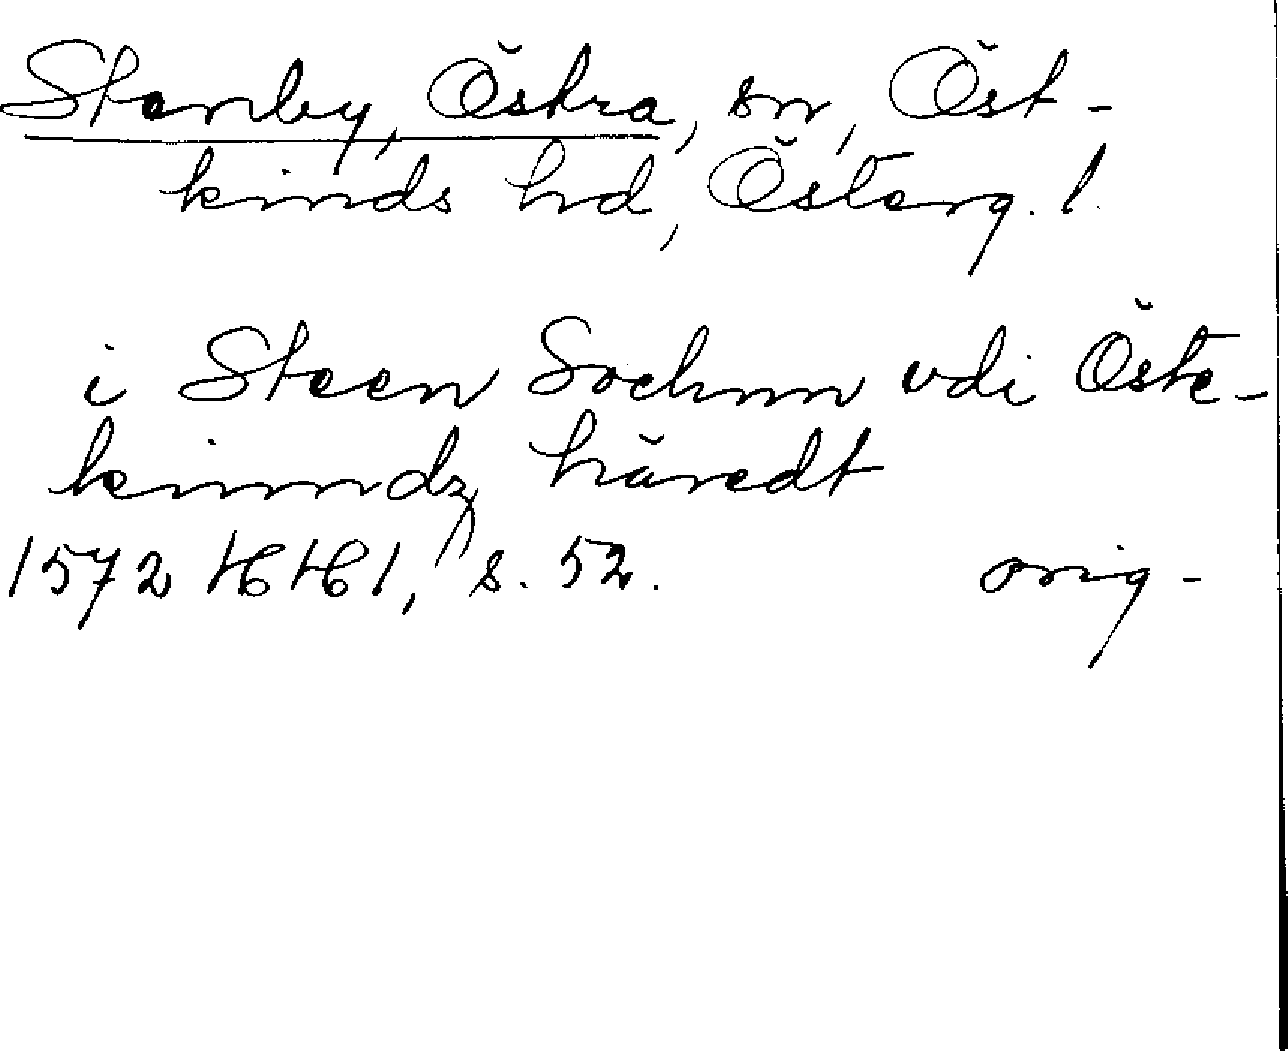 Stenby, Östra, sn, Öst-
kinds hd, Österg. l.
i Steen Sochnn vdi Öste-
kinndz häredt
1572 HH1, s. 52. orig-